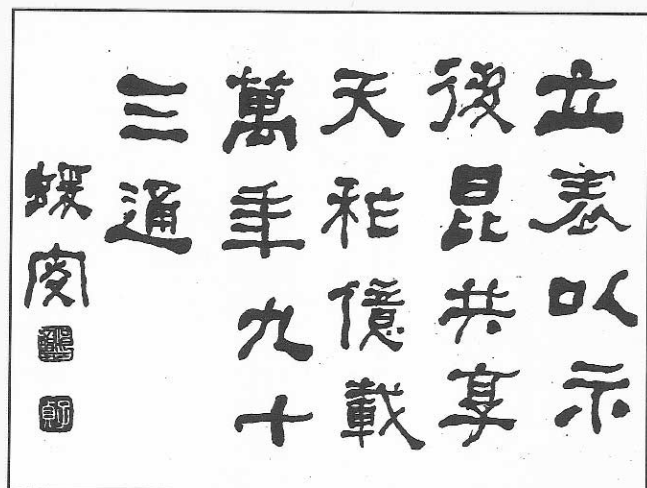 立表以示
後昆共享
天祚億載
萬年九十
三通
蝯叟